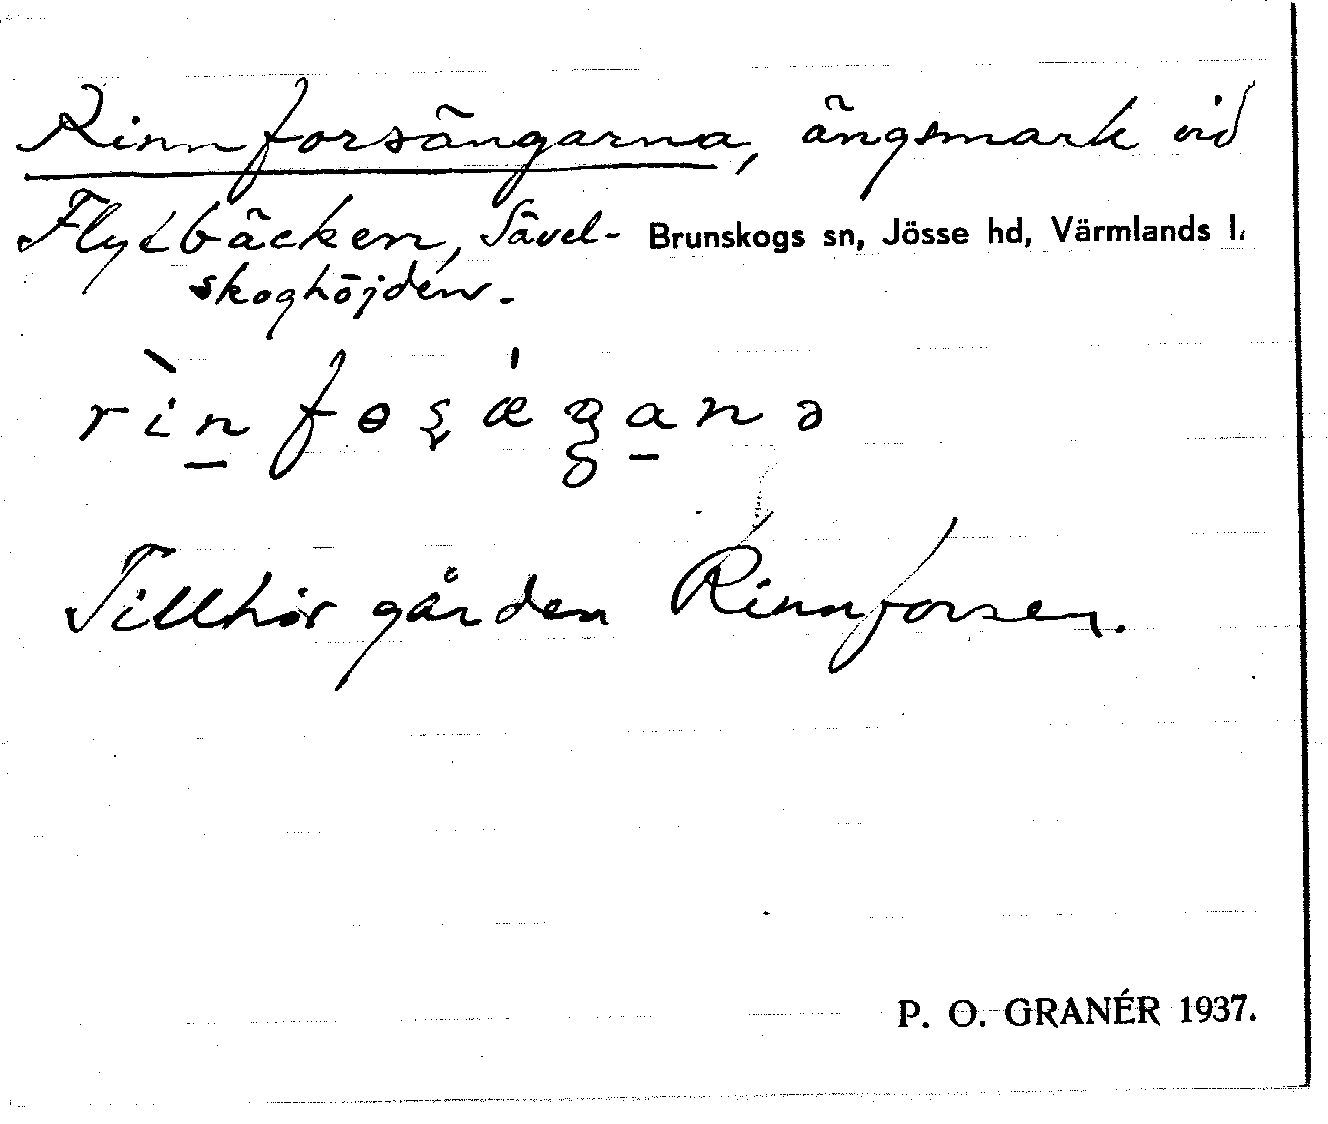 Rinnforsängarna, ängsmark vid
Flytbäcken, Sävel- Brunskogs sn, Jösse hd, Värmlands l.
skoghöjden.
Tillhör gården Rinnforsen.
P. O. GRANÉR 1937.